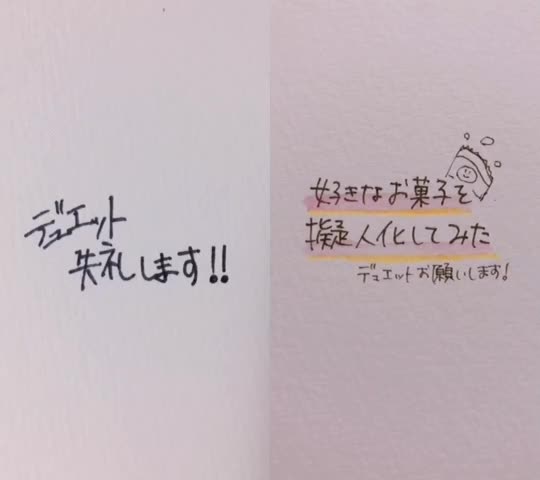 デュエット
失礼します!!
好きなお菓子を
擬人化してみた
デュエットお願いします!